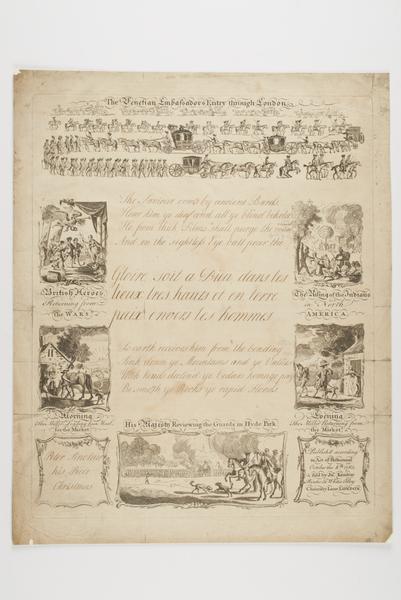 The Venetian Embassadors Entry through London
The Saviour comes by ancient Bards
Hear him ye deaf and all ye blind behold
He from thick Films shall purge the visual
And on the sightless Eye ball pour the
Gloire soit a Dieu dans les
lieux tres hauts et en terre
paix envers les hommes
to earth receives him from the bending
Sink down ye Mountains and ye Vallies
With heads declin'd ye Cedars homage pay
Be smooth ye Rocks ye rapid Floods
British Heroes
Returning from
the WARS
The Ruling of the Indians
in North
AMERICA
Morning
the Market
Evening
The Miller Returning from
the Market
His Majesty Reviewing the Guards in Hyde Park
Peter
his Piece
Christmas
Publish'd according
to Act of Parliament
October the
Chancery Lane LONDON